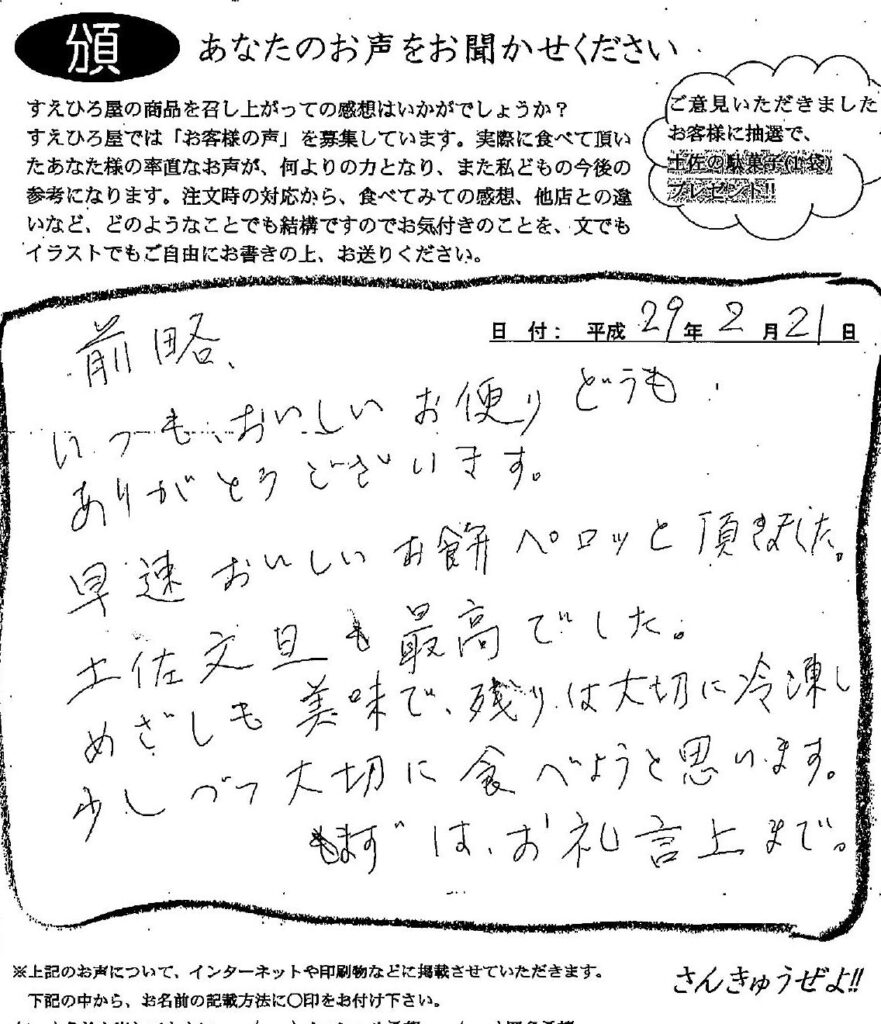 頒
あなたのお声をお聞かせください
すえひろ屋の商品を召し上がっての感想はいかがでしょうか？
すえひろ屋では「お客様の声」を募集しています。実際に食べて頂い
たあなた様の率直なお声が、何よりの力となり、また私どもの今後の
参考になります。注文時の対応から、食べてみての感想、他店との違
いなど、どのようなことでも結構ですのでお気付きのことを、文でも
イラストでもご自由にお書きの上、お送りください。
ご意見いただきました
お客様に抽選で、
土佐の駄菓子(1袋)
プレゼント!!
日 付： 平成 29 年 2 月 21 日
前略、
いつも、おいしいお便りどうも
ありがとうございます。
早速おいしいお餅ペロッと頂きました。
土佐文旦も最高でした。
めざしも美味で、残りは大切に冷凍し
少しづつ大切に食べようと思います。
まずは、お礼言上まで。
※上記のお声について、インターネットや印刷物などに掲載させていただきます。
下記の中から、お名前の記載方法に〇印をお付け下さい。
さんきゅうぜよ!!